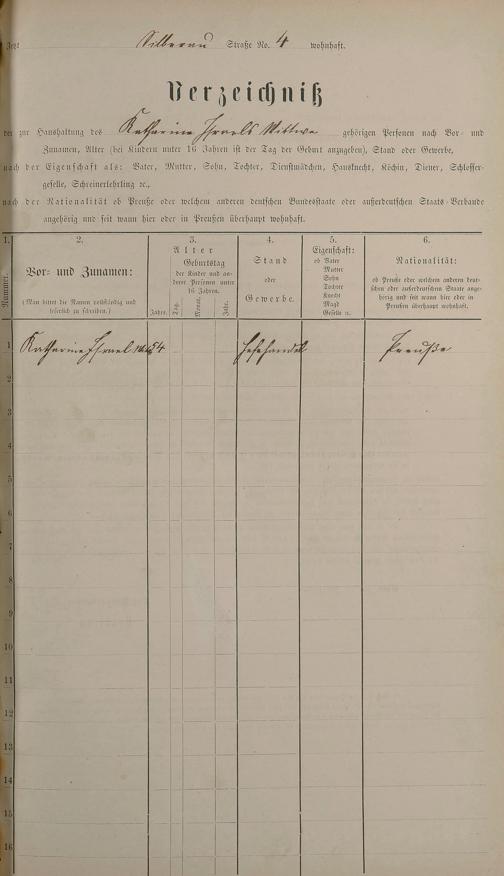 Jetzt Silberau Straße No. 4 wohnhaft.
Verzeichniß
der zur Haushaltung des Katharina Israels Wittwe gehörigen Personen nach Vor- und
Zunamen, Alter (bei Kindern unter 16 Jahren ist der Tag der Geburt anzugeben), Stand oder Gewerbe,
nach der Eigenschaft als: Vater, Mutter, Sohn, Tochter, Dienstmädchen, Hausknecht, Köchin, Diener, Schlosser-
geselle, Schreinerlehrling ꝛc.,
nach der Nationalität ob Preuße oder welchem anderen deutschen Bundesstaate oder außerdeutschen Staats-Verbande
angehörig und seit wann hier oder in Preußen überhaupt wohnhaft.
1. 2. 3. 4. 5. 6.
Nummer.
Vor- und Zunamen:
(Man bittet die Namen vollständig und
leserlich zu schreiben.)
Alter
Jahre.
Geburtstag
der Kinder und an-
derer Personen unter
16 Jahren.
Tag. Monat. Jahr.
Stand
oder
Gewerbe.
Eigenschaft:
ob Vater
Mutter
Sohn
Tochter
Knecht
Magd
Geselle ꝛc.
Nationalität:
ob Preuße oder welchem anderen deut-
schen oder außerdeutschen Staate ange-
hörig und seit wann hier oder in
Preußen überhaupt wohnhaft.
1 Katharina Israel 54 Hefehandel Preuße
2
3
4
5
6
7
8
9
10
11
12
13
14
15
16